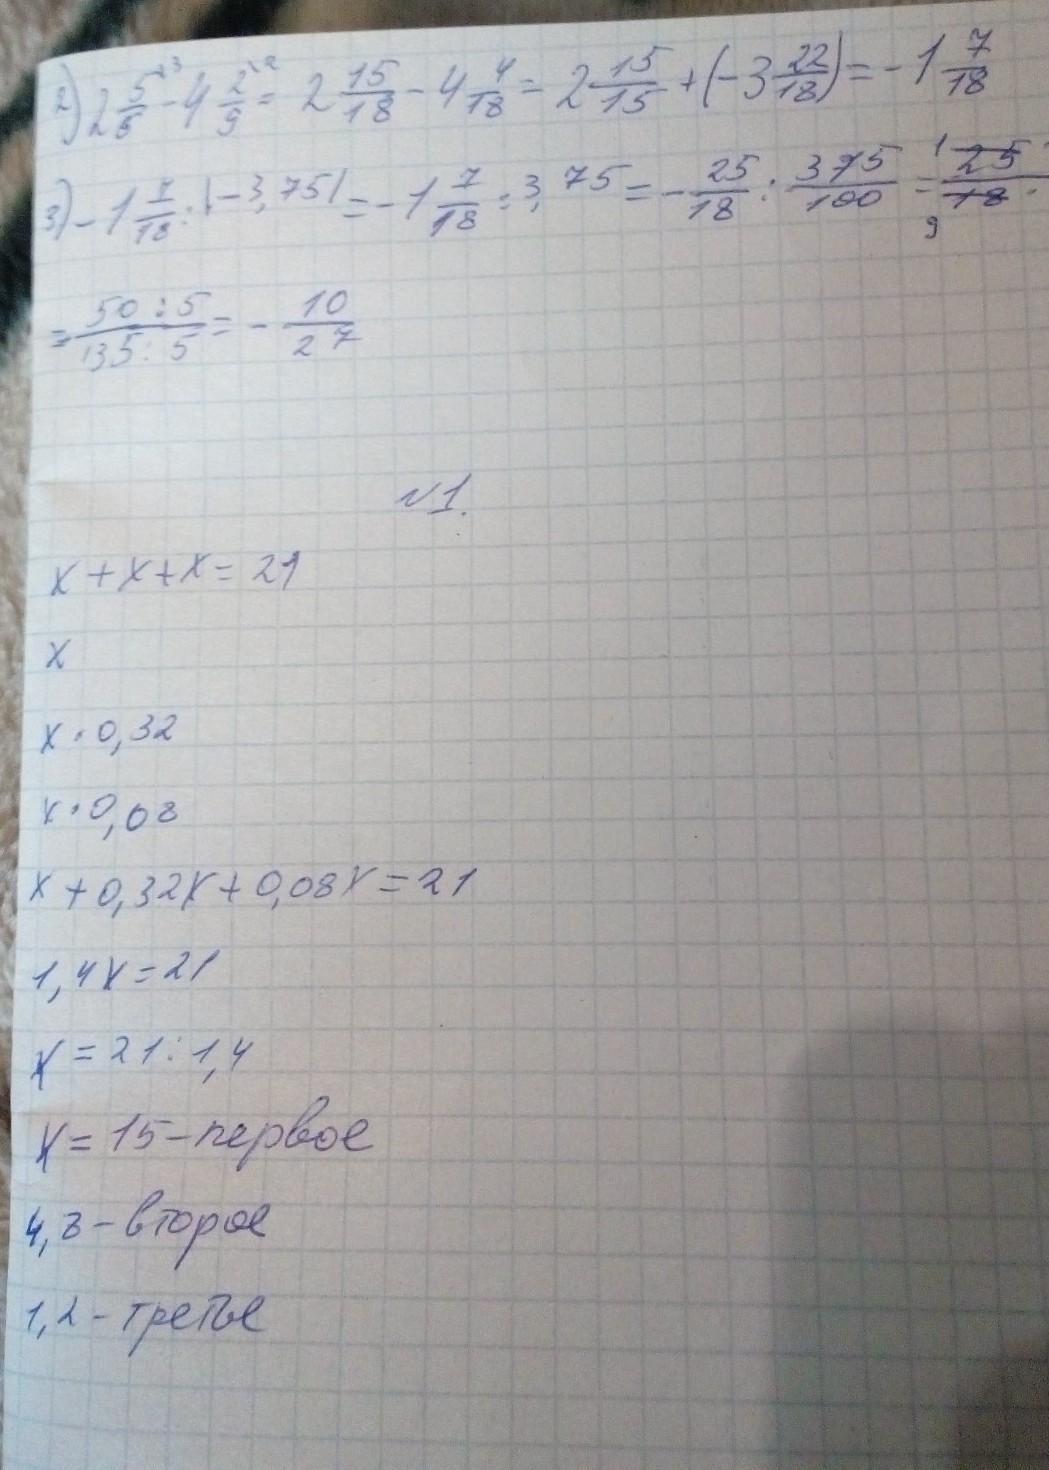 2) 2 5/6 \3 - 4 2/9 \2 = 2 15/18 - 4 4/18 = 2 15/15 + (-3 22/18) = -1 7/18
3) -1 7/18 : |-3,75| = -1 7/18 : 3,75 = -25/18 : 375/100 = 25/18 ·
= 50:5/135:5 = - 10/27
№1.
x + x + x = 21
x
x · 0,32
x · 0,08
x + 0,32x + 0,08x = 21
1,4x = 21
x = 21 : 1,4
x = 15 - первое
4,8 - второе
1,2 - третье